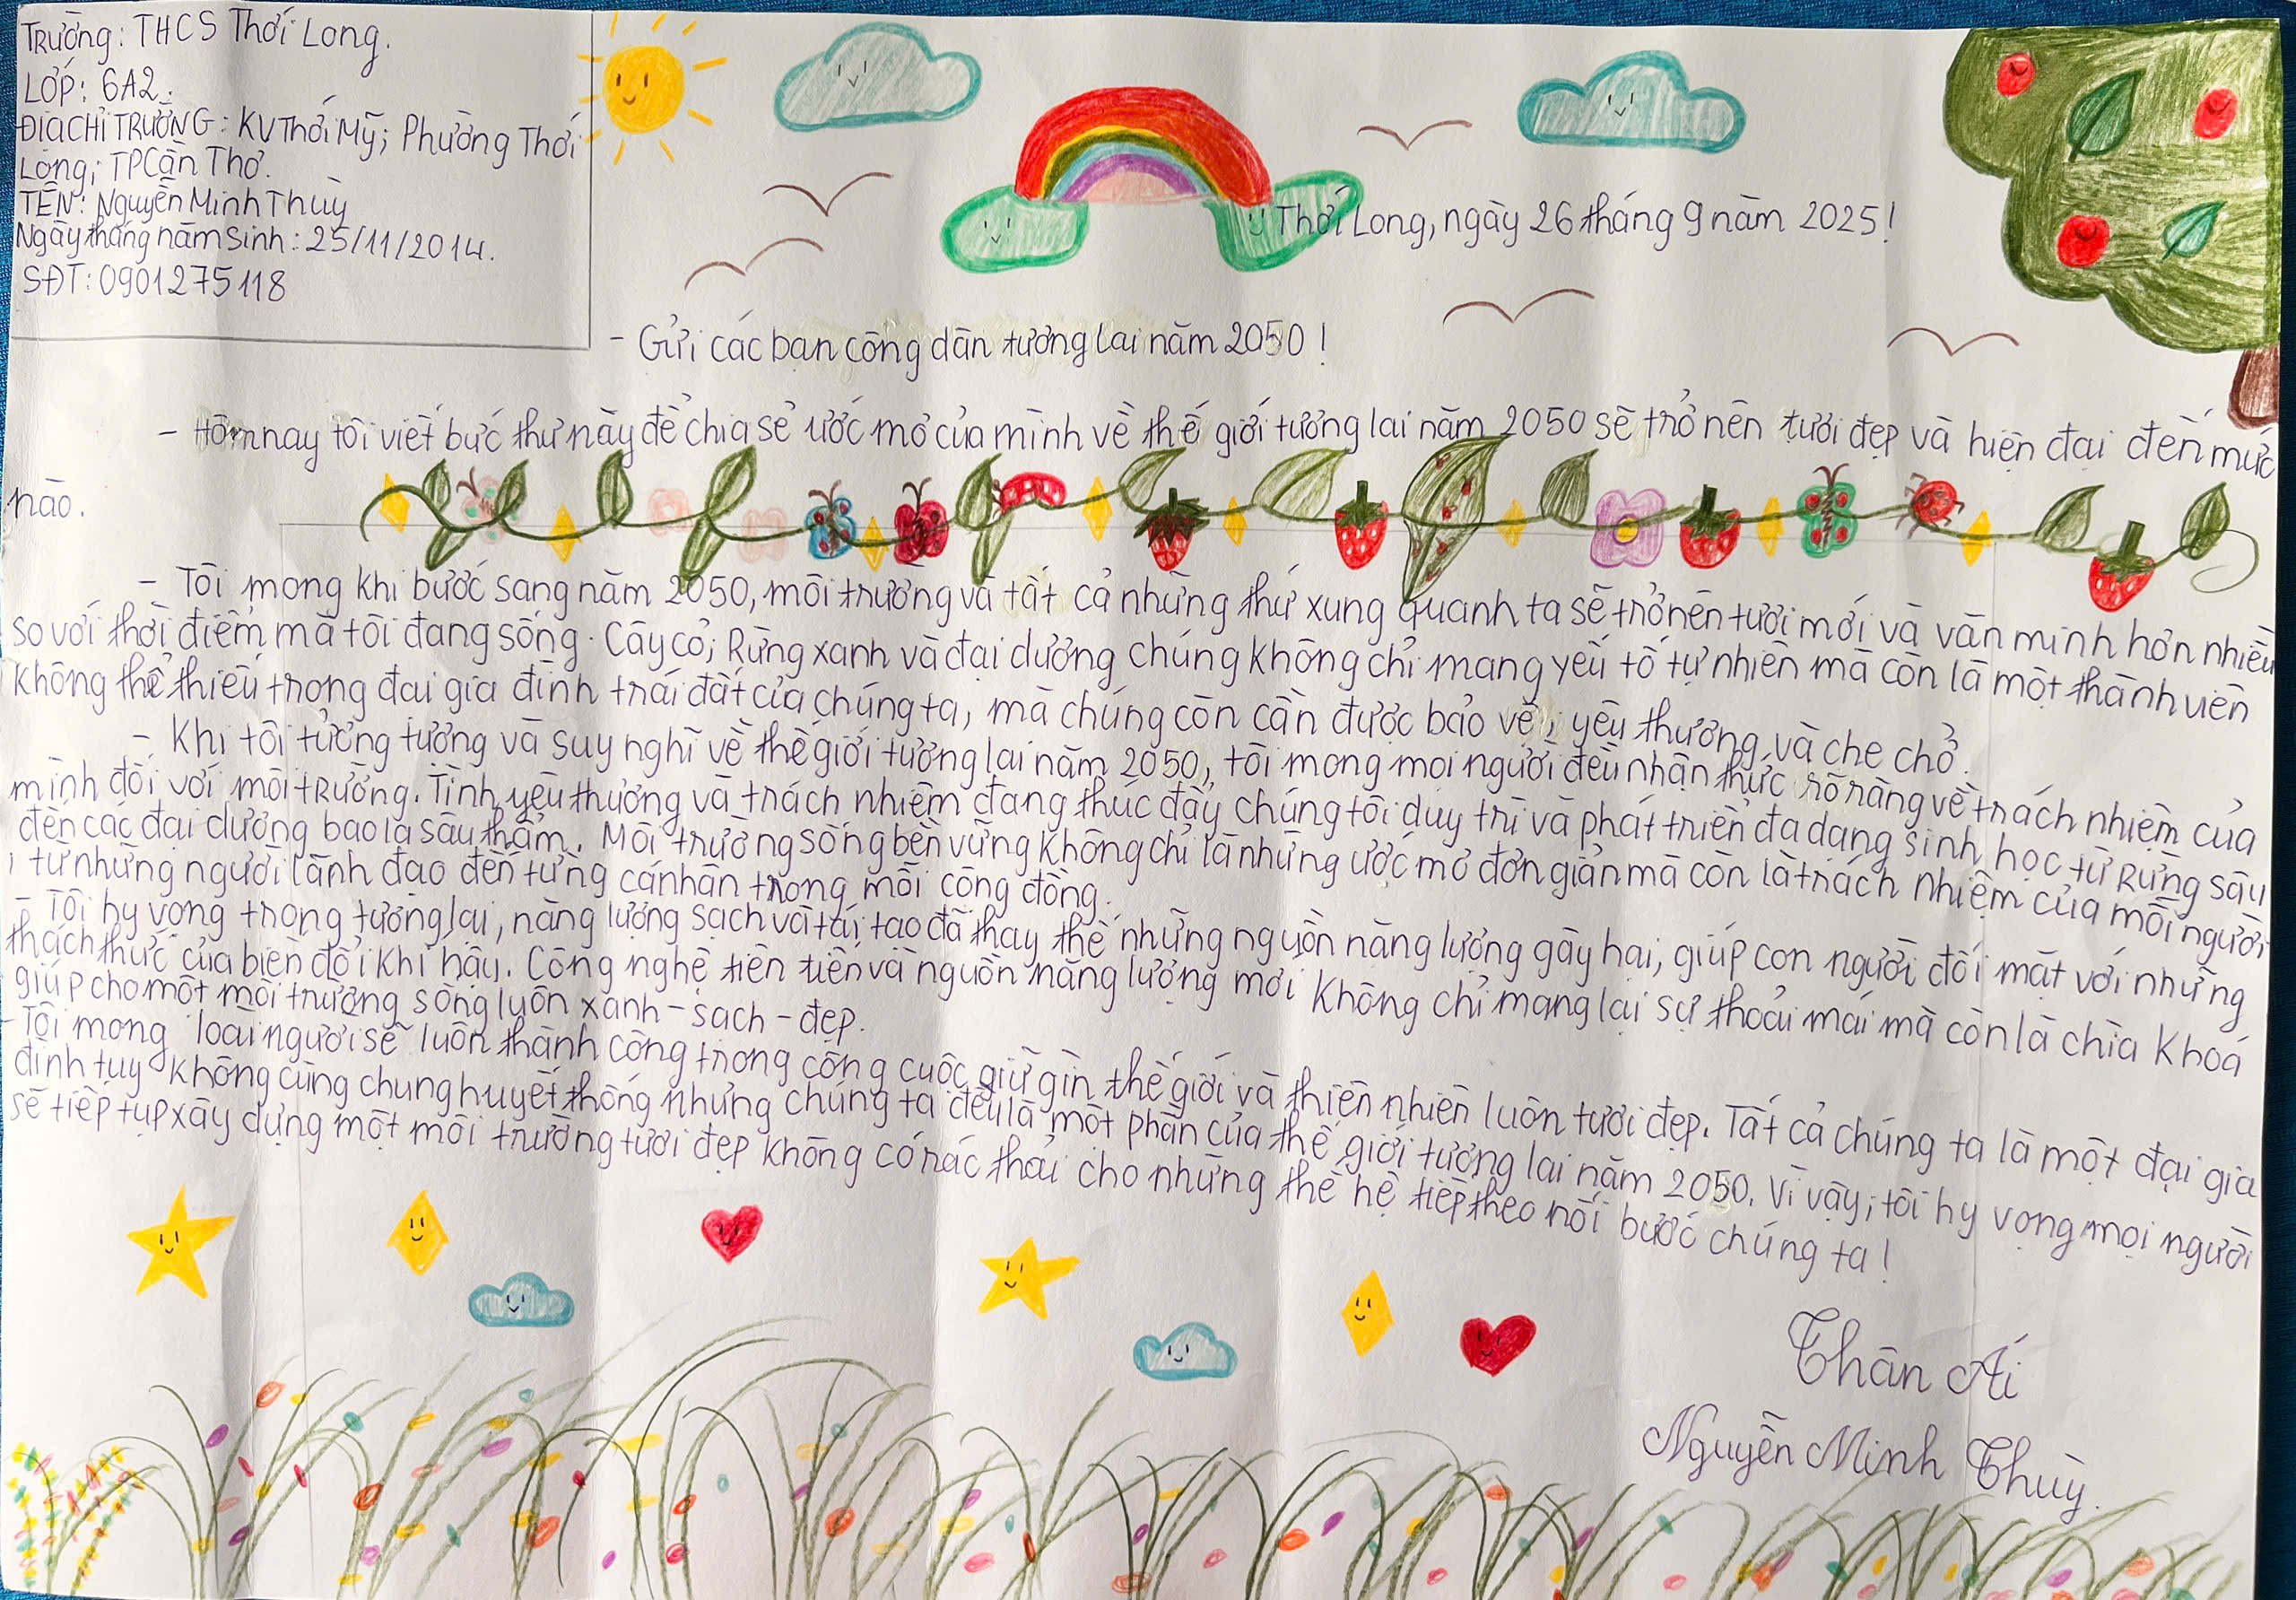 Trường: THCS Thới Long.
Lớp: 6A2.
Địa chỉ trường: KV Thới Mỹ; Phường Thới
Long; TP Cần Thơ.
TÊN: Nguyễn Minh Thuỳ
Ngày tháng năm sinh: 25/11/2014.
SĐT: 0901275118
Thới Long, ngày 26 tháng 9 năm 2025!
- Gửi các bạn công dân tương lai năm 2050!
- Hôm nay tôi viết bức thư này để chia sẻ ước mơ của mình về thế giới tương lai năm 2050 sẽ trở nên tươi đẹp và hiện đại đến mức
nào.
- Tôi mong khi bước sang năm 2050, môi trường và tất cả những thứ xung quanh ta sẽ trở nên tươi mới và văn minh hơn nhiều
so với thời điểm mà tôi đang sống. Cây cỏ; Rừng xanh và đại dương chúng không chỉ mang yếu tố tự nhiên mà còn là một thành viên
không thể thiếu trong đại gia đình trái đất của chúng ta, mà chúng còn cần được bảo vệ; yêu thương và che chở.
- Khi tôi tưởng tượng và suy nghĩ về thế giới tương lai năm 2050, tôi mong mọi người đều nhận thức rõ ràng về trách nhiệm của
mình đối với môi trường. Tình yêu thương và trách nhiệm đang thúc đẩy chúng tôi duy trì và phát triển đa dạng sinh học từ Rừng sâu
đến các đại dương bao la sâu thẳm. Môi trường sống bền vững không chỉ là những ước mơ đơn giản mà còn là trách nhiệm của mỗi người
; từ những người lãnh đạo đến từng cá nhân trong mỗi cộng đồng.
- Tôi hy vọng trong tương lai, năng lượng sạch và tái tạo đã thay thế những nguồn năng lượng gây hại, giúp con người đối mặt với những
thách thức của biến đổi khí hậu. Công nghệ tiên tiến và nguồn năng lượng mới không chỉ mang lại sự thoải mái mà còn là chìa khoá
giúp cho một môi trường sống luôn xanh - sạch - đẹp.
- Tôi mong loài người sẽ luôn thành công trong công cuộc giữ gìn thế giới và thiên nhiên luôn tươi đẹp. Tất cả chúng ta là một đại gia
đình tuy không cùng chung huyết thống nhưng chúng ta đều là một phần của thế giới tương lai năm 2050. Vì vậy; tôi hy vọng mọi người
sẽ tiếp tục xây dựng một môi trường tươi đẹp không có rác thải cho những thế hệ tiếp theo nối bước chúng ta!
Thân Ái
Nguyễn Minh Thuỳ.